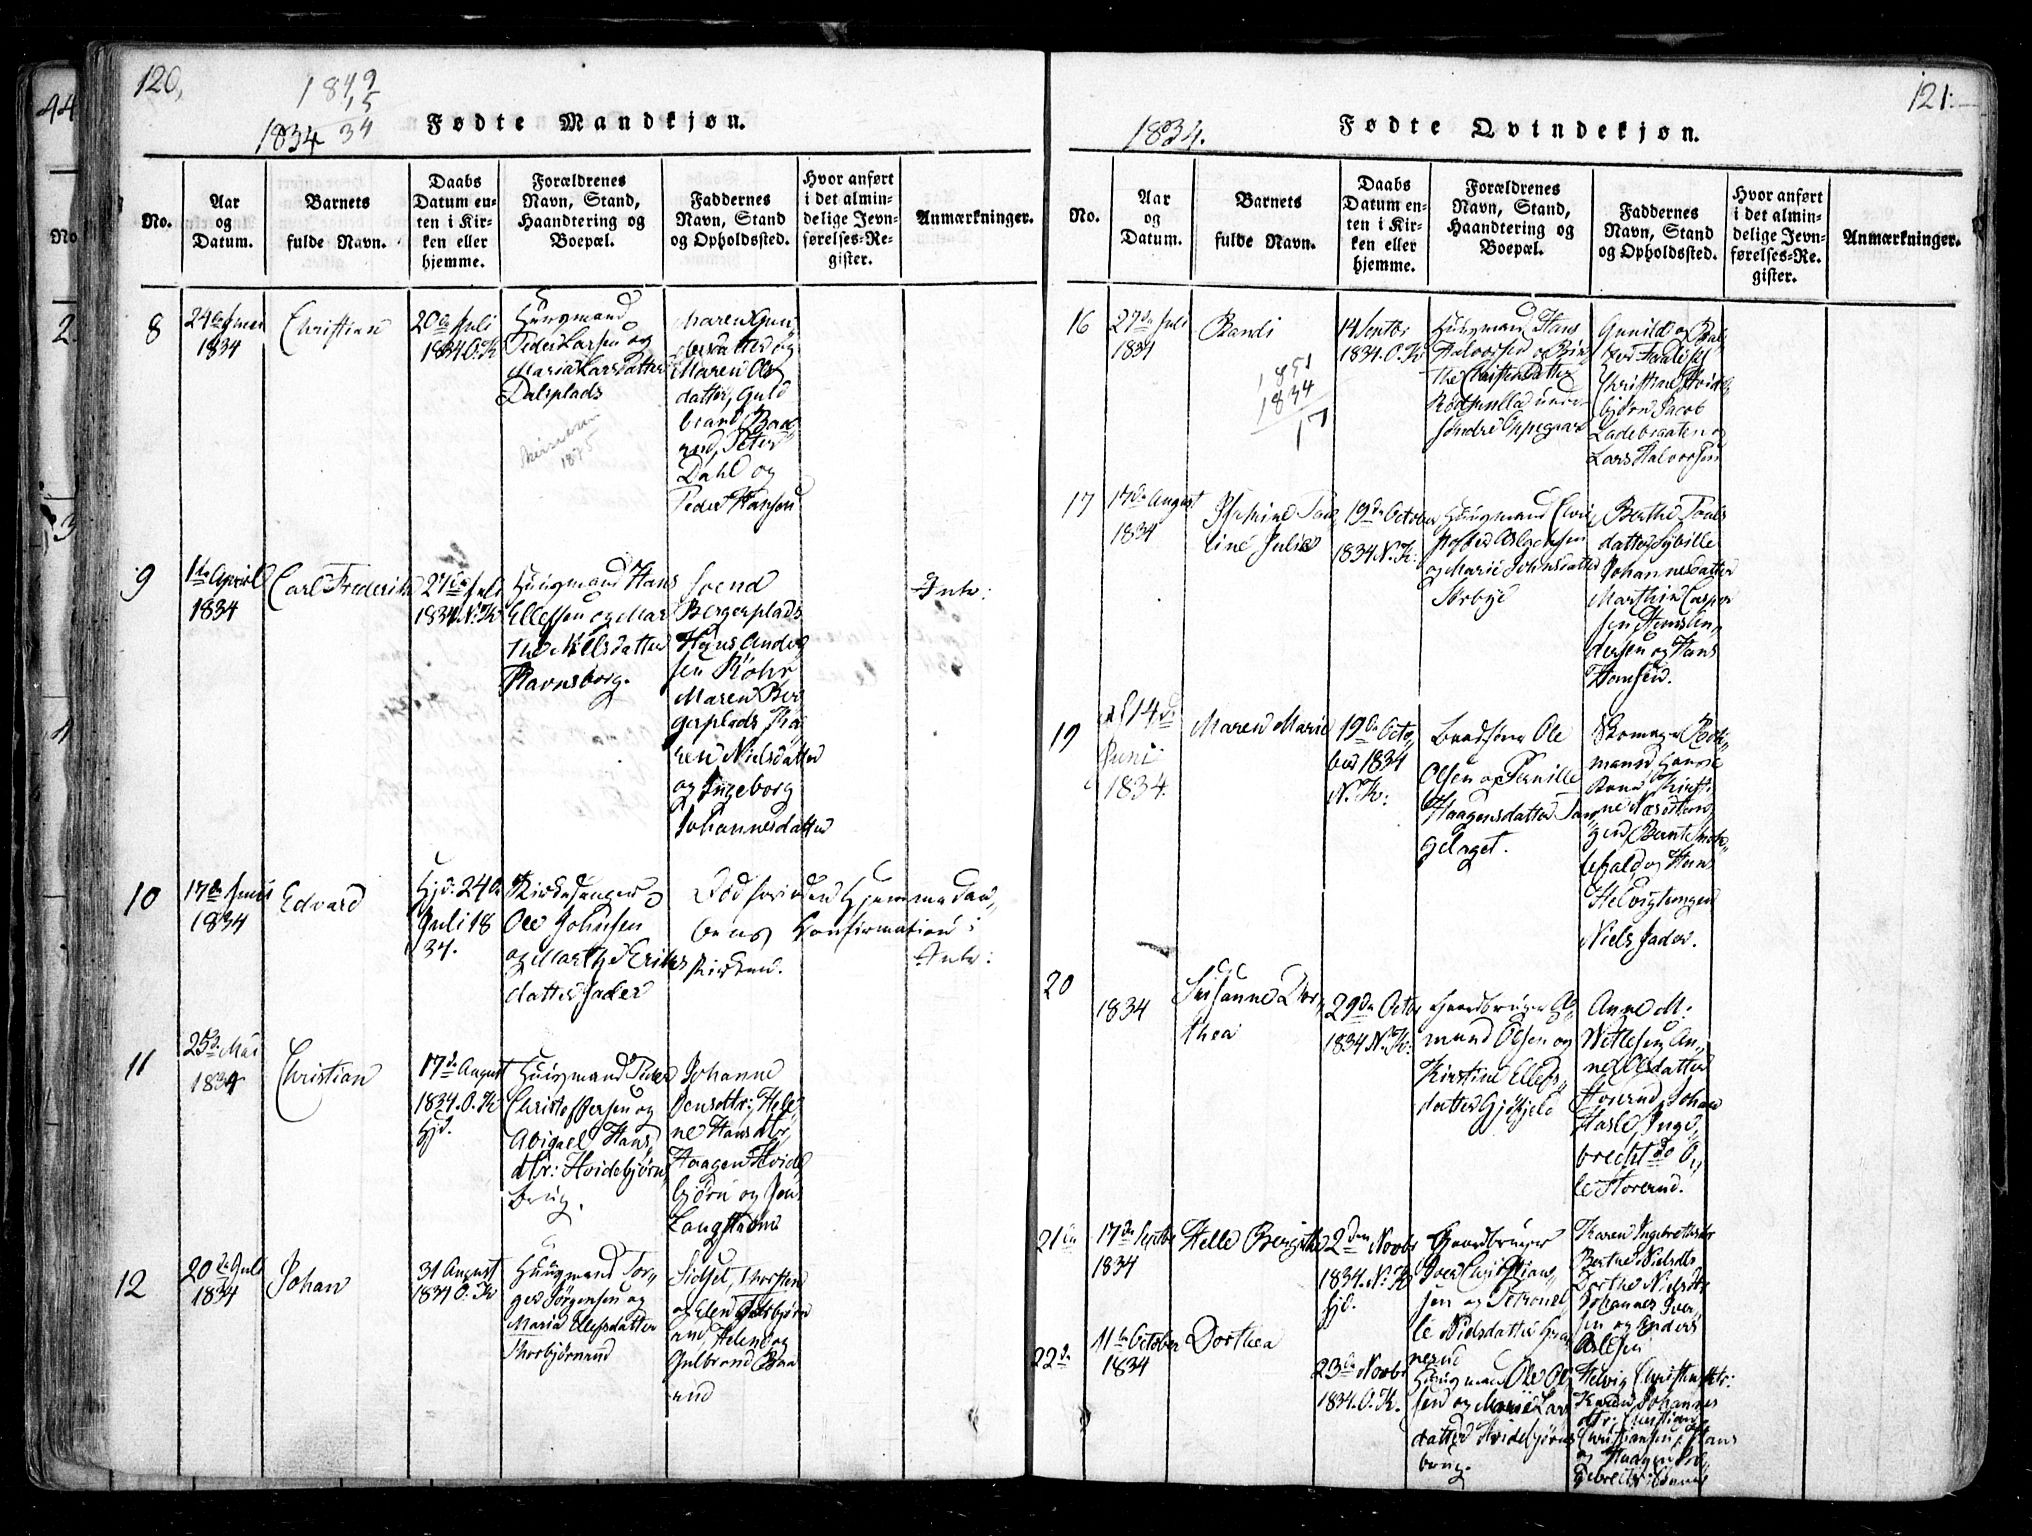 120,
1849
15
34
1834
Fødte Mandkjøn.
No.
Aar
og
Datum.
Barnets
fulde Navn.
Daabs
Datum en-
ten i Kir-
ken eller
hjemme.
Forældrenes
Navn, Stand,
Haandtering og
Boepæl.
Faddernes
Navn, Stand
og Opholdssted.
Hvor anført
i det almin-
delige Jevn-
førelses-Re-
gister.
Anmærkninger.
8
1834
Christian
20de Juli
1834 O.K
Huusmand
Peder Larsen og
Maria Larsdatter
Dalsplads
1875
Maren Gun
dersdatter og
Maren Ols
datter, Guld
brand Baa
rud, Peter
Dahl og
Peder Hansen
9
1ste April
1834
Carl Frederik
27de Juli
1834 N.K
Huusmand Hans
Ellefsen og Mar
the Nilsdatter
Ravnsborg.
Svend
Bergerplads
Hans Ander
sen Röhr
Maren Ber
gerplads Ka
ren Nielsdatter
og Ingeborg
Johannesdatter
Intr:
10
17de Juni
1834
Edvard
Hjd. 24de
Juli 18
34.
Kirkesanger
Ole Johnsen
og Marthe Eriks
datter Jader
Død forinden Hjemmedaa-
bens Confirmation i
Kirken.
Intr:
11
25de Mai
1834
Christian
17de August
1834. O.K
Hjd.
Huusmand Peder
Christophersen og
Abigael Hans
dtr: Hvidebjørn
brug.
Johanne
Jensdtr; Hele
ne Hansdtr,
Haagen Hvide
bjørn og Jens
Langstadm
12
20de Juli
1834
Johan
31 August
1834 O.K
Huusmand Tor-
ger Jørgensen og
Maria Ellefsdatter
Thorbjørnrud
Sidsel, Thorsten
og Elen Torbjørn
rud, Helene og
Gulbrand Baa
rud
121.
1834.
Fødte Qvindekjøn.
No.
Aar
og
Datum.
Barnets
fulde Navn.
Daabs
Datum en-
ten i Kir-
ken eller
hjemme.
Forældrenes
Navn, Stand,
Haandtering og
Boepæl.
Faddernes
Navn, Stand
og Opholdssted.
Hvor anført
i det almin-
delige Jevn-
førelses-Re-
gister.
Anmærkninger.
16
27de Juli
1834
Randi
1851
1834
17
14 Septbr
1834. O.K
Huusmand Hans
Halvorsen og Bir
the Christensdatter
under
søndre Oppegaard
Gunild og
Christine Hvide
bjørn Jacob
Ladebraaten og
Lars Halvorsen
17
17de August
1834
line Julie
19de October
1834 N.K:
Huusmand Chri
stopher Aslaksen
og Marie Johnsdatter
Berthe Pauls
datter Sybille
Johannesdatter
Marthin Casper
sen
dersen og Hans
Hansen.
19
14de
Juni
1834.
Maren Marie
19de Octo-
ber 1834
N.K:
Ole
Olsen og Pernille
Haagensdatter Tan
gelaget.
Skomager
mand
Kirsti
ne
gen Bernt
og Hans
Helvigtangen
Niels Jader.
20
1834
Susanne Dor-
thea
29de Octbr
1834 N.K:
Gaardbruger A-
mund Olsen og
Kirstine Ellefs-
datter Gjøfjeld
Anne M:
Nitlesen An-
ne Olsdatter
Storerud, Johan
Hasle Inge-
brecht do O-
le Storerud.
21de
17de Septbr
1834
Helle Bergithe
2den Novbr
1834. N.K
Hjd.
Gaardbruger
Iver Christians-
sen og Petronel-
le Nielsdatter Gra
nerud
Karen Ingebretsdtr
Berthe Nielsdtr
Dorthe Nielsdtr
Johannes Iver-
sen og Anders
Aslesen
22de
11te October
1834
Dorthea
23de Novbr
1834. O.K.
Huusmand Ole Ol
sen og Marie Lars
datter Hvidebjørns
brug.
Helvig Christensdtr:
Karen Johannes
dtr: Christian
Christiansen, Hans
og Haagen